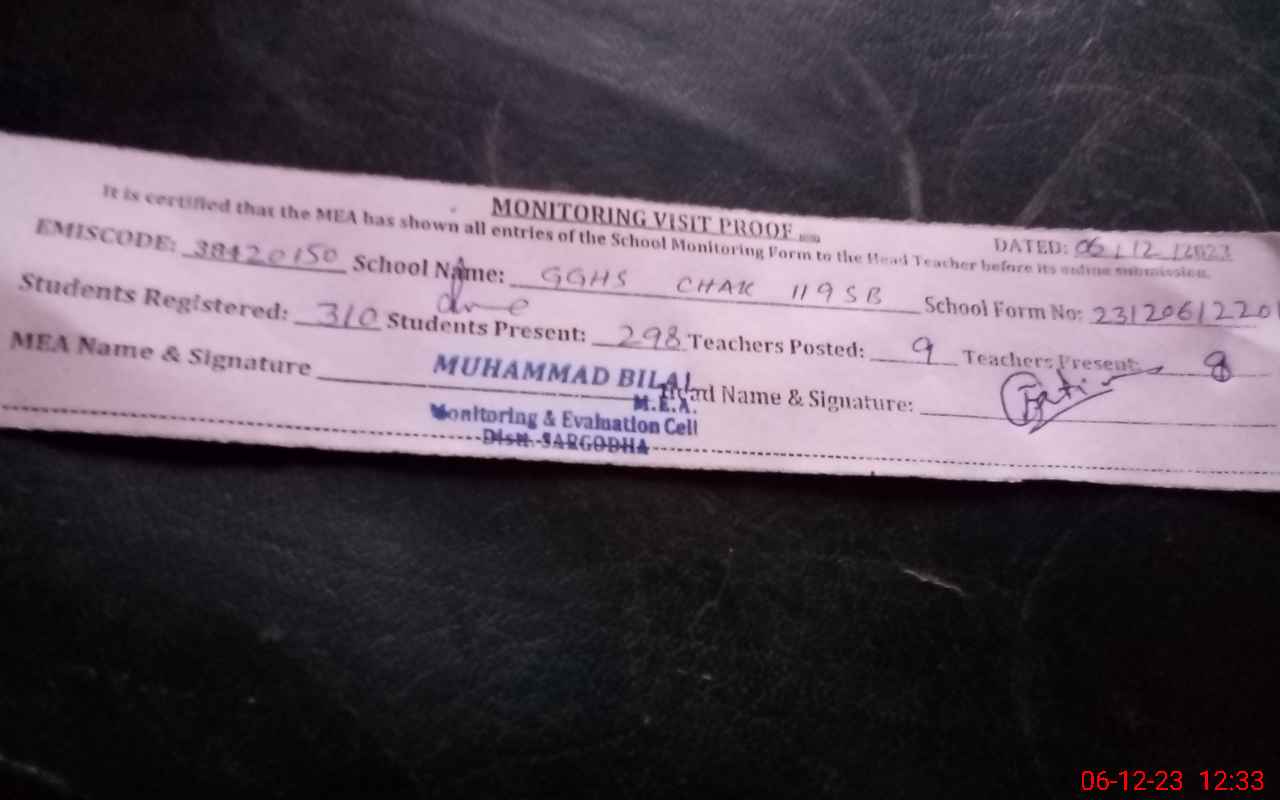 MONITORING VISIT PROOF
DATED: 06/12/2023
It is certified that the MEA has shown all entries of the School Monitoring Form to the Head Teacher before its online submission.
EMISCODE: 38420150 School Name: GGHS CHAK 119 SB School Form No: 23120612201
Students Registered: 310 Students Present: 298 Teachers Posted: 9 Teachers Present: 8
MEA Name & Signature Head Name & Signature:
MUHAMMAD BILAL
M.E.A.
Monitoring & Evaluation Cell
Distt. SARGODHA
06-12-23 12:33